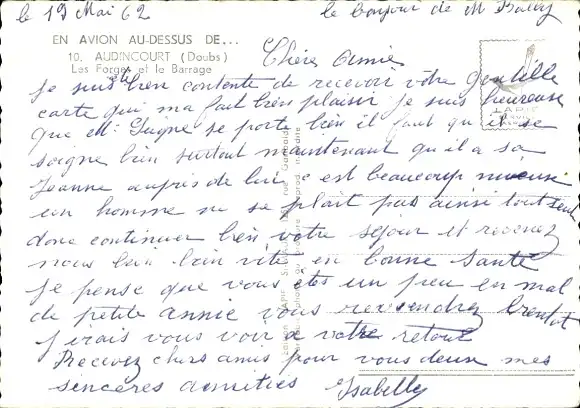 le 19 Mai 62
le bonjour de M
EN AVION AU-DESSUS DE...
10. AUDINCOURT (Doubs)
Les Forges et le Barrage
Chère Amie
Je suis été bien contente de recevoir votre gentille
carte qui ma fait bien plaisir je suis heureuse
que Mr se porte bien il faut qu'il se
soigne bien surtout maintenant qu'il a sa
Jeanne aupris de lui c est beaucoup mieux
un homme ne se plait pas ainsi tout seul
donc continuer bien votre séjour et revenez
nous bien vite en bonne santé
Je pense que vous êtes un peu en mal
de petite annie vous reviendrez bientot
j irais vous voir a votre retour
Recevez chers amis pour vous deux mes
sencères amitiés Isabelle
LAPIE